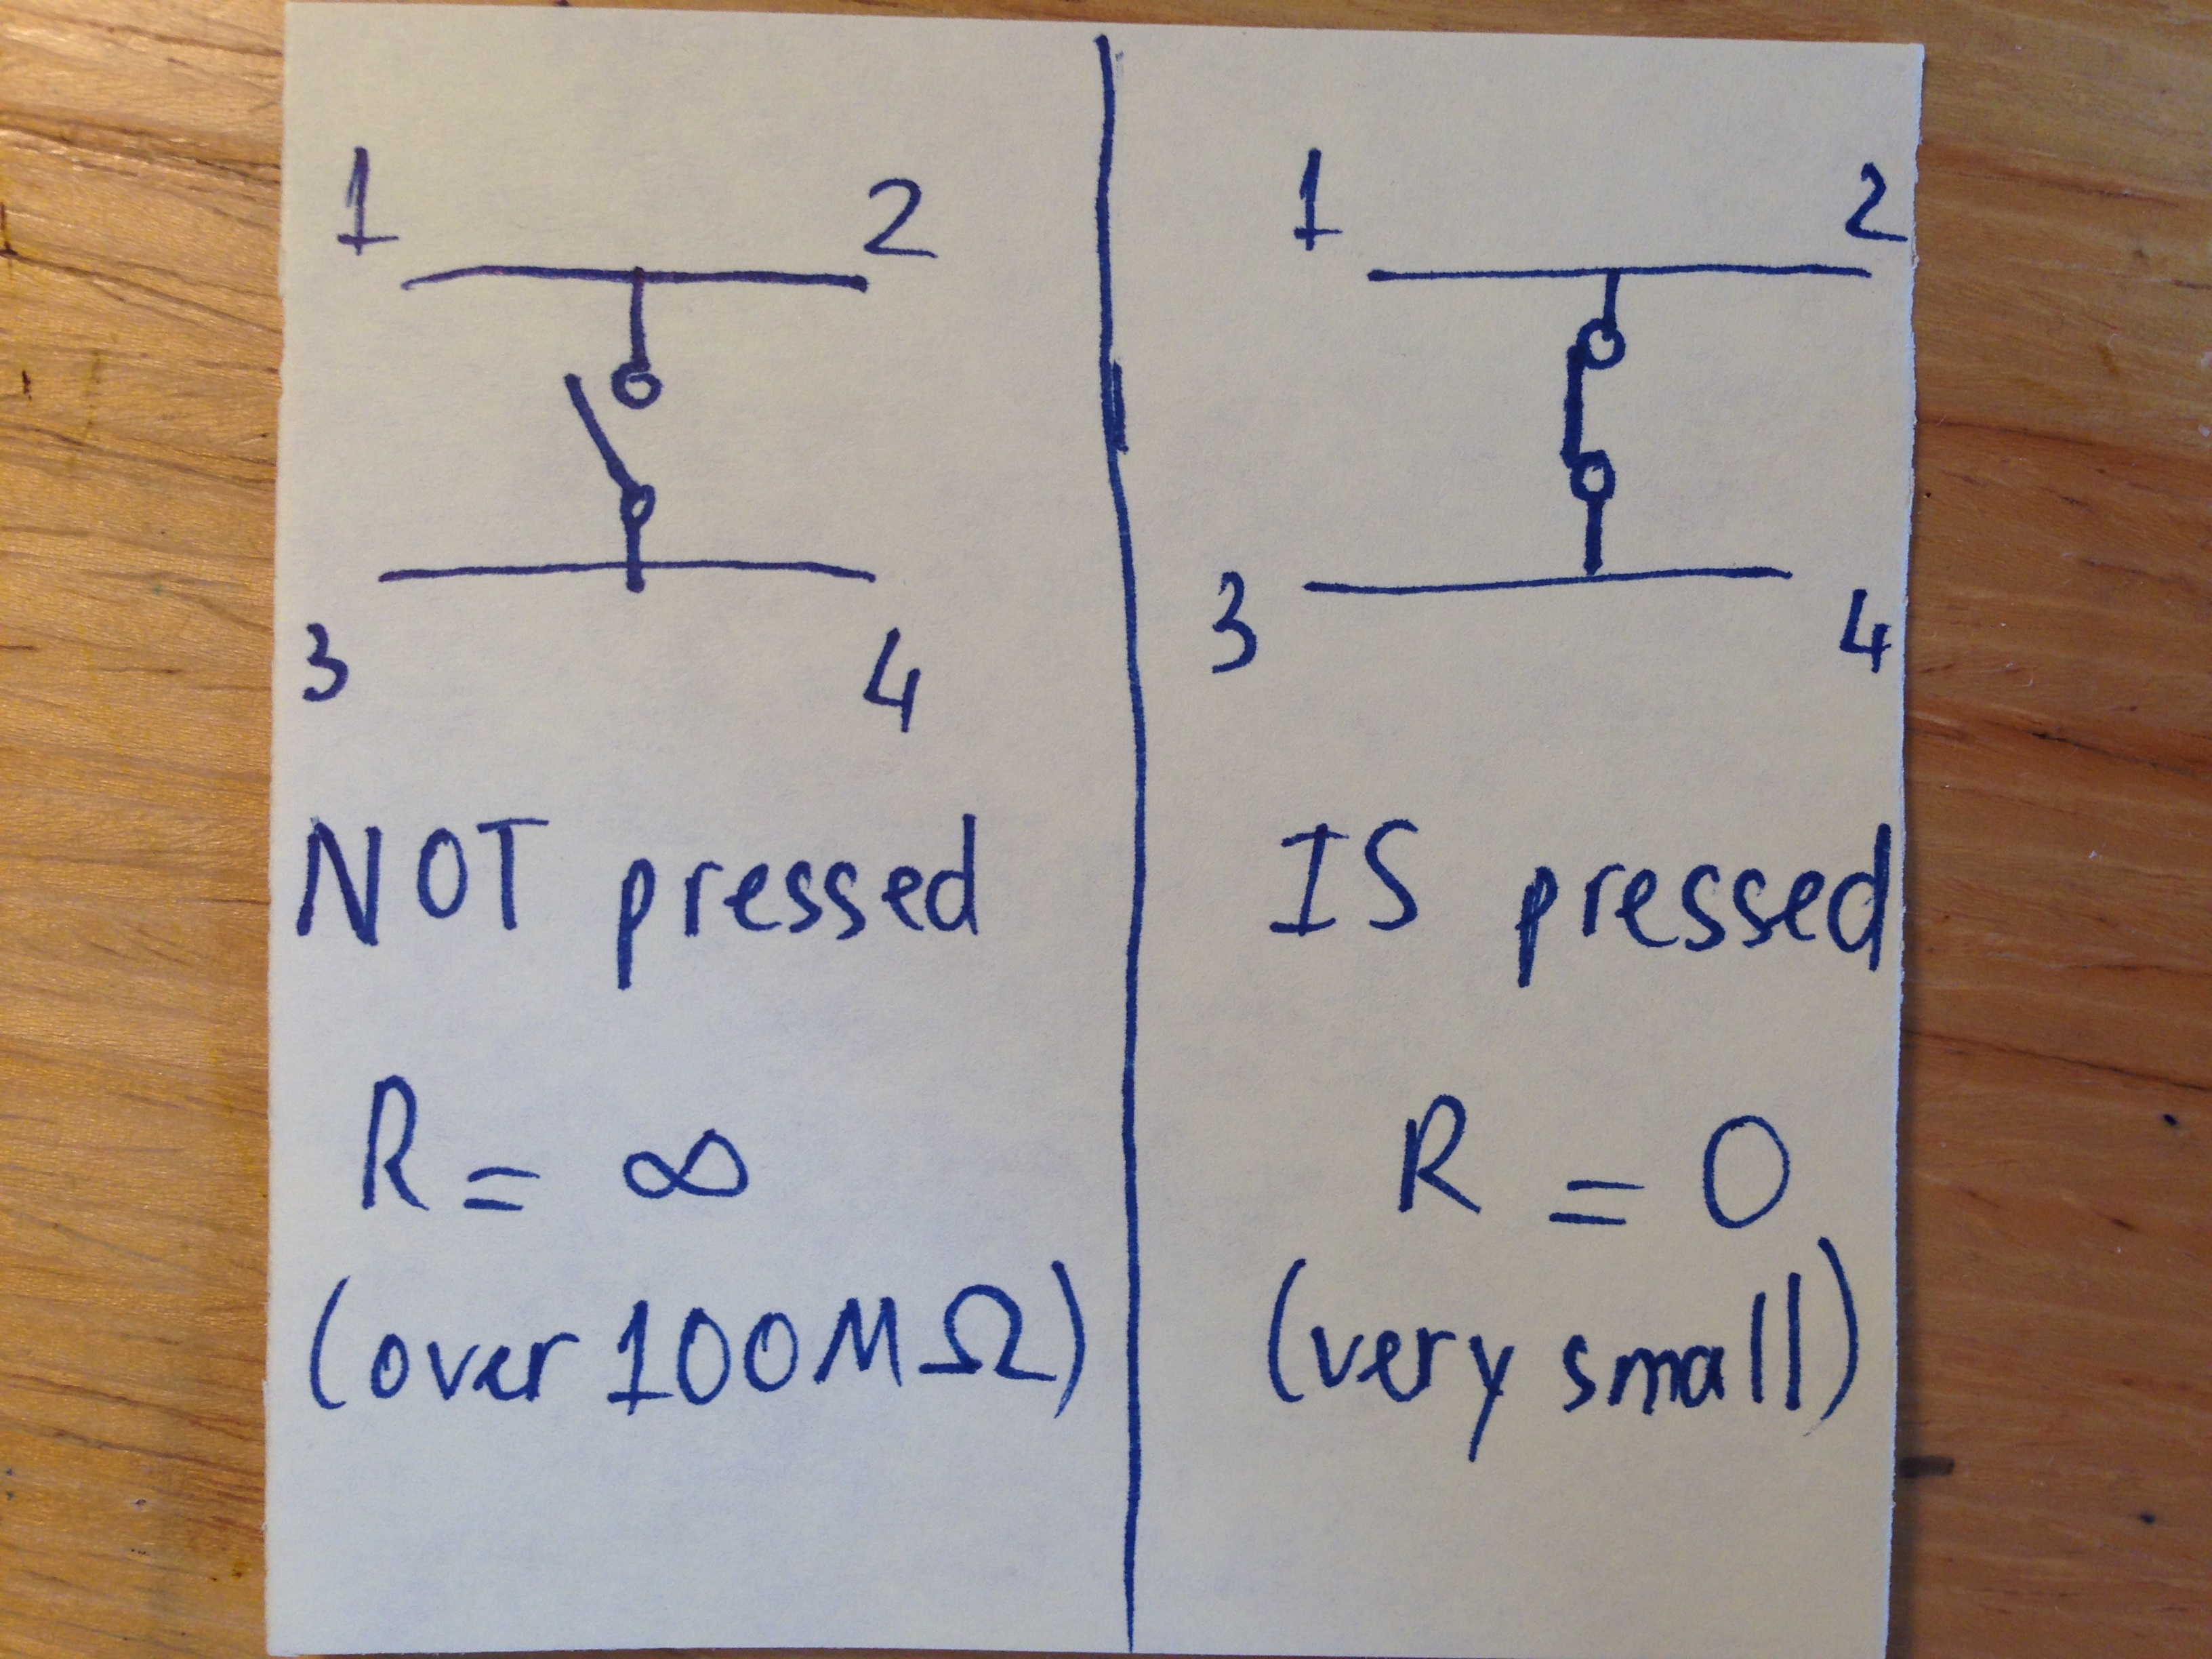 1 2
3 4
NOT pressed
R = ∞
(over 100MΩ)
1 2
3 4
IS pressed
R = 0
(very small)